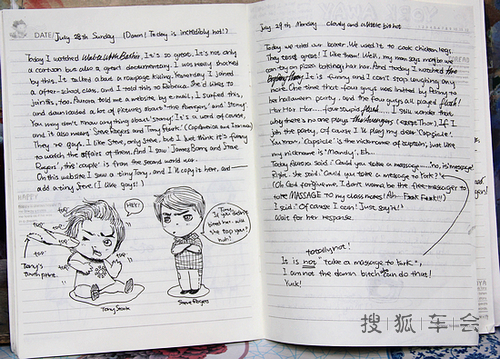 DATE/ July 28th Sunday (Damn! Today is incredibly hot!)
Today I watched It's so great. It's not only
a cartoon but also a great documentary. I was really shocked
by this. It talked about a rampage killing. Yesterday I joined
a after-school class, and I told this to Rebecca. She'd like to
join this, too. Aurora told me a website, by e-mail, I surfed this,
and downloaded a lot of pictures about "the Avengers" and "stony".
You may don't know anything about "stony". It's a word of course,
and it also means "Steve Rogers and Tony Stark". (Captain America and Ironman)
They're gays. I like Steve, only Steve, but I just think it's funny
to watch the affairs of them. And I saw "James Barnes and Steve
Rogers", this "couple" is from the second world war.
On this website, I saw a tiny Tony, and I'll copy it here, and
add a tiny Steve. (I like gays!!)
HEY!
top
top
top
top
top
top
Tony's
Tony Stark
Tony,
If you don't
bleed her, who
the top you?
huh?
Steve Rogers
July 29th Monday cloudy and a little bit hot
Today we used our boxer. We used it to cook chicken legs.
They taste great! I like them! Well, my mom says maybe we
can try on pizza baking! Ha! Ha! And today I watched the
It is funny and I can't stop laughing any
more. One time that four guys was invited by Penny to
her Halloween party, and the four guys all played flash!
Ha! Ha! Ha! .... four stupid flash .... I still wonder that
why there's no one plays The Avengers (except Thor)? If I
join the party, of course I'll play my dear "Capsicle".
You know, "Capsicle" is the nickname of captain, just like
my nickname is "Mandy", Eh...
Today Rebecca said: Could you take a message ... no, is message
Right. she said: Could you take a message to York?
(Oh God forgive me, I don't wanna be the free messager to
take MASSAGE to my class mates! Ah~ Faak Faak!!!)
I said: "Of course I can! Just say it!"
Wait for her response.
totally not!
It is not "take a message to York",
I am not the damn bitch who can do that!
Yuck!
搜狐车会